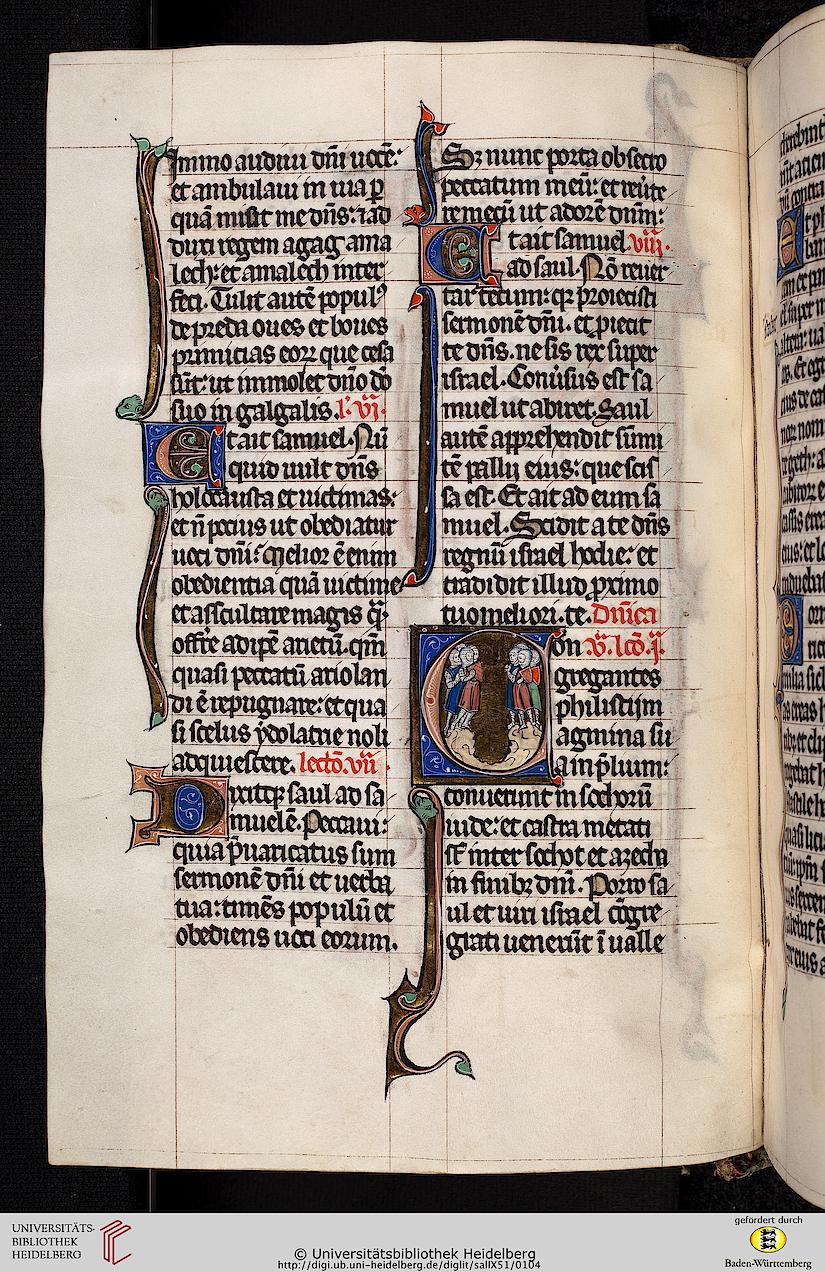 Immo audiui dñi uocē:
et ambulaui in uia ꝑ
quā misit me dñs: ⁊ ad
duxi regem agag ama
lech: et amalech inter
feci. Tulit autē populꝰ
de preda oues et boues
primicias eoꝝ que cesa
sūt: ut immolet dño dō
suo in galgalis. l'. vi.
Et ait samuel. Nū
quid uult dñs
holocausta et uictimas:
et ñ pocius ut obediatur
uoci dñi? Melior ē enim
obedientia quā uictime
et ascultare magis q̄ꝫ
offr̄e adipē arietū. qm̄
quasi peccatū ariolan
di ē repugnare: et qua
si scelus ydolatrie noli
adquiescere. lectō. vii
Dixitqꝫ saul ad sa
muelē. Peccaui:
quia p̄uaricatus sum
sermonē dñi et uerba
tua: timēs populū et
obediens uoci eorum.
Sꝫ nunc porta obsecro
peccatum meū: et reūte
re mecū ut adorē dnm:
Et ait samuel. viii.
ad saul. Nō reuer
tar tecum: qꝛ proiecisti
sermonē dñi. et ꝓiecit
te dñs. ne sis rex super
israel. Conūsus est sa
muel ut abiret. Saul
autē apprehendit sūmi
tē pallij eius: que scis
sa est. Et ait ad eum sa
muel. Scidit a te dñs
regnū israel hodie: et
tradidit illud ꝓximo
tuo meliori. te. Dñica
Con v̄. lcō. j̄.
gregantes
philistijm
agmina su
a in p̄lium:
conuenerunt in socchoth
iude: et castra metati
st̄ inter sochot et azecha
in finibꝫ dnm. Porro sa
ul et uiri israel cōgre
grati uenerūt ī ualle
UNIVERSITÄTS-
BIBLIOTHEK
HEIDELBERG
© Universitätsbibliothek Heidelberg
http://digi.ub.uni-heidelberg.de/diglit/salIX51/0104
gefördert durch
Baden-Württemberg